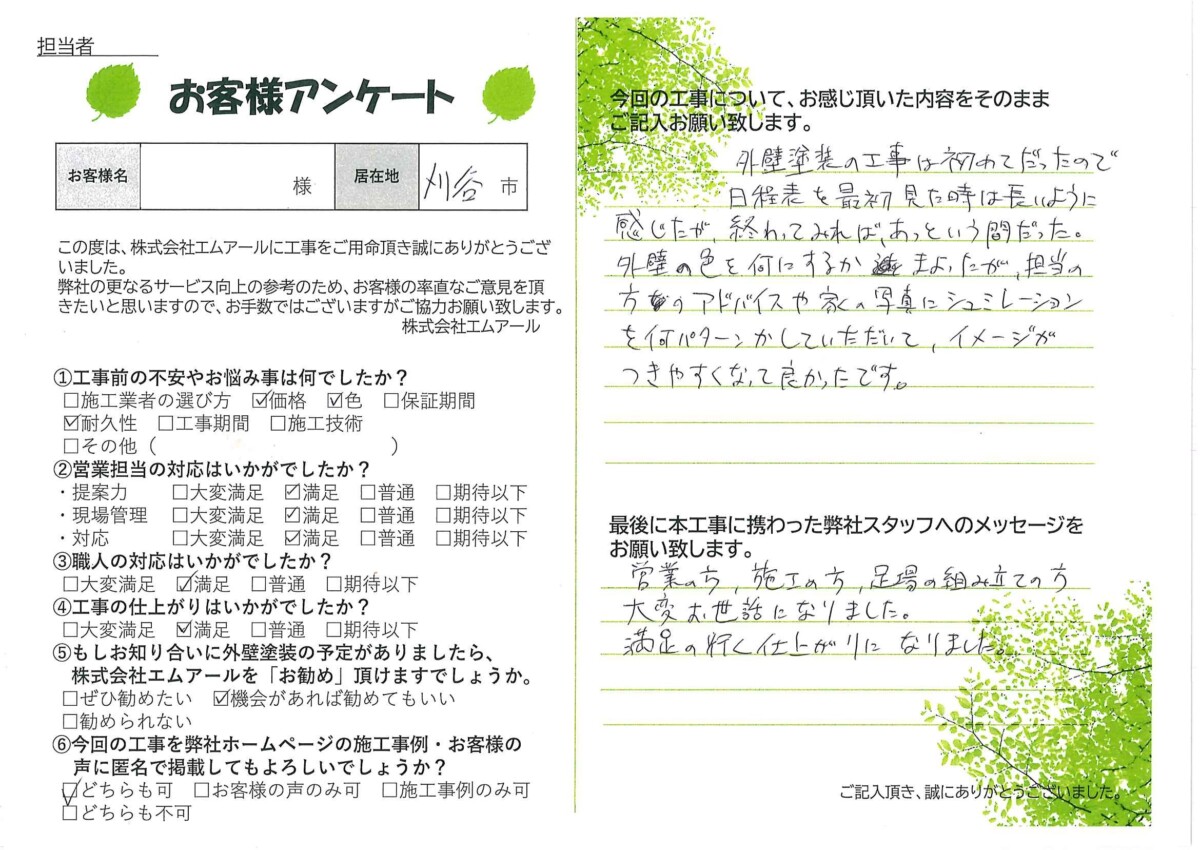 担当者
お客様アンケート
お客様名 様 居在地 刈谷 市
この度は、株式会社エムアールに工事をご用命頂き誠にありがとうござ
いました。
弊社の更なるサービス向上の参考のため、お客様の率直なご意見を頂
きたいと思いますので、お手数ではございますがご協力お願い致します。
株式会社エムアール
①工事前の不安やお悩み事は何でしたか？
□施工業者の選び方 ☑価格 ☑色 □保証期間
☑耐久性 □工事期間 □施工技術
□その他（ ）
②営業担当の対応はいかがでしたか？
・提案力 □大変満足 ☑満足 □普通 □期待以下
・現場管理 □大変満足 ☑満足 □普通 □期待以下
・対応 □大変満足 ☑満足 □普通 □期待以下
③職人の対応はいかがでしたか？
□大変満足 ☑満足 □普通 □期待以下
④工事の仕上がりはいかがでしたか？
□大変満足 ☑満足 □普通 □期待以下
⑤もしお知り合いに外壁塗装の予定がありましたら、
株式会社エムアールを「お勧め」頂けますでしょうか。
□ぜひ勧めたい ☑機会があれば勧めてもいい
□勧められない
⑥今回の工事を弊社ホームページの施工事例・お客様の
声に匿名で掲載してもよろしいでしょうか？
☑どちらも可 □お客様の声のみ可 □施工事例のみ可
□どちらも不可
今回の工事について、お感じ頂いた内容をそのまま
ご記入お願い致します。
外壁塗装の工事は初めてだったので
日程表を最初見た時は長いように
感じたが、終わってみれば、あっという間だった。
外壁の色を何にするか まよったが、担当の
方のアドバイスや家の写真にシュミレーション
を何パターンかしていただいて、イメージが
つきやすくなって良かったです。
最後に本工事に携わった弊社スタッフへのメッセージを
お願い致します。
営業の方、施工の方、足場の組み立ての方
大変お世話になりました。
満足の行く仕上がりになりました。
ご記入頂き、誠にありがとうございました。